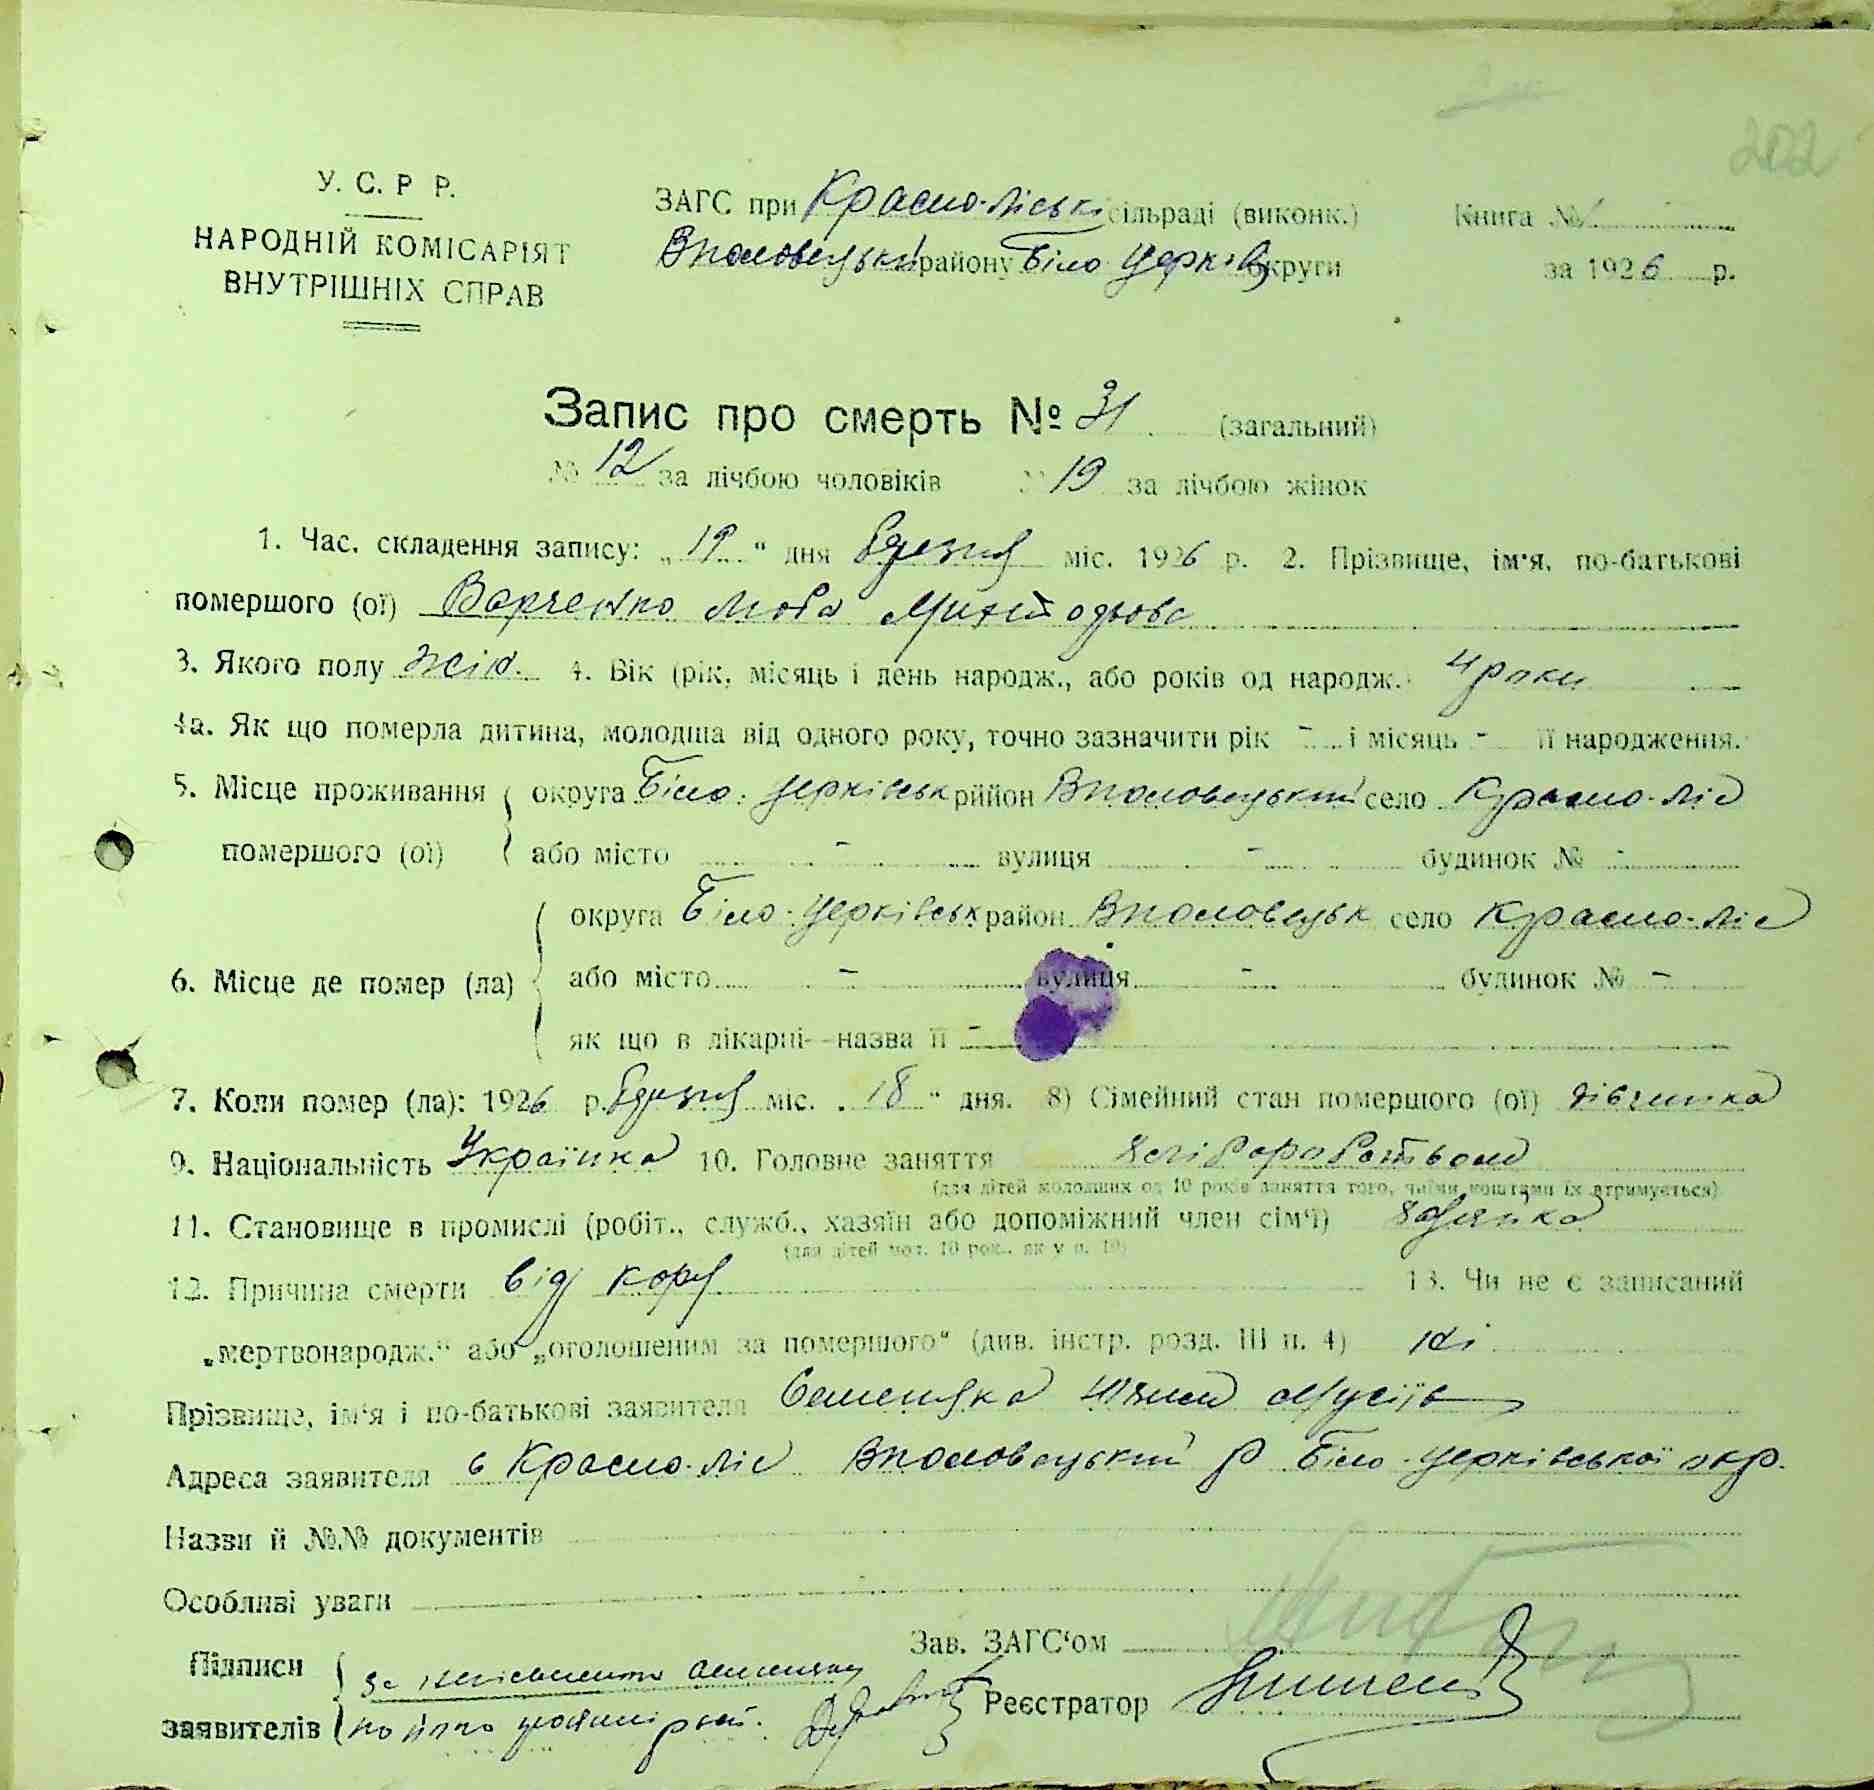 202
У. С. Р Р.
НАРОДНІЙ КОМІСАРІЯТ
ВНУТРІШНІХ СПРАВ
ЗАГС при Красно-Ліські сільраді (виконк.)
району Біло Церків округи
Книга №
за 1926 р.
Запис про смерть № 31 (загальний)
№ 12 за лічбою чоловіків № 19 за лічбою жінок
1. Час. складення запису: „19" дня березня міс. 1926 р. 2. Прізвище, ім'я, по-батькові
помершого (ої) Варченко Люба
3. Якого полу жін. 4. Вік (рік, місяць і день народж., або років од народж. 4 роки
4а. Як що померла дитина, молодша від одного року, точно зазначити рік - і місяць - її народження.
5. Місце проживання округа Біло-Церківськ район Вполовецький село Красно-Ліс
помершого (ої) або місто - вулиця - будинок № -
округа Біло-Церківськ район Вполовецьк село Красно-Ліс
6. Місце де помер (ла) або місто - вулиця - будинок № -
як що в лікарні—назва її -
7. Коли помер (ла): 1926 р. березня міс. „18" дня. 8) Сімейний стан помершого (ої) дівчинка
9. Національність Українка 10. Головне заняття хліборобством
(для дітей молодших од 10 років заняття того, чиїми коштами їх втримується)
11. Становище в промислі (робіт., служб., хазяїн або допоміжний член сім'ї) хазяйка
(для дітей мол. 10 рок., як у п. 10)
12. Причина смерти від кору 13. Чи не є записаний
„мертвонародж." або „оголошеним за помершого" (див. інстр. розд. III п. 4) ні
Прізвище, ім'я і по-батькові заявителя Семеняка Мусіїв
Адреса заявителя с Красно-Ліс Вполовецький р Біло-Церківської окр.
Назви й №№ документів
Особливі уваги
Зав. ЗАГС'ом
Підписи за
заявителів по його
Реєстратор